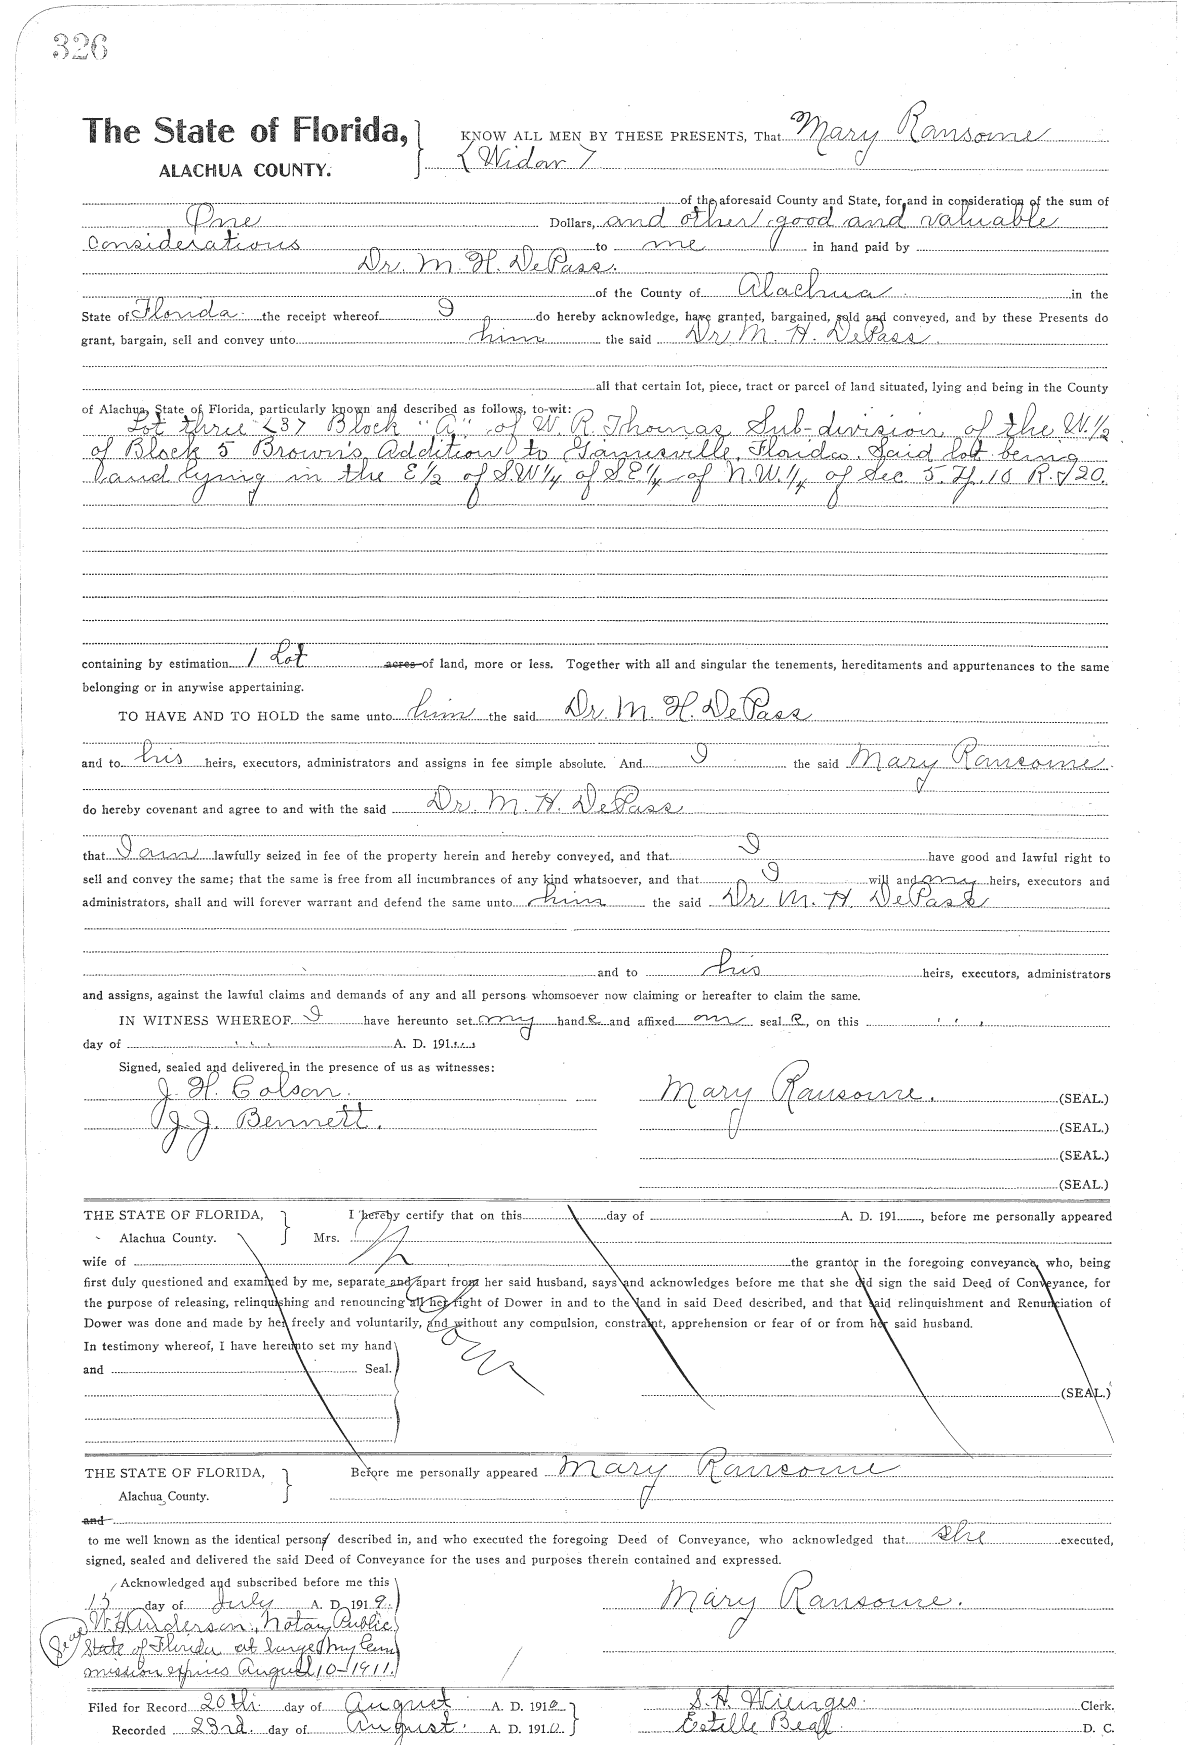 326
The State of Florida, KNOW ALL MEN BY THESE PRESENTS, That Mary Ransome
ALACHUA COUNTY. (Widow)
of the aforesaid County and State, for and in consideration of the sum of
One Dollars, and other good and valuable
Considerations to me in hand paid by
Dr. M. H. DePass.
of the County of Alachua in the
State of Florida the receipt whereof I do hereby acknowledge, have granted, bargained, sold and conveyed, and by these Presents do
grant, bargain, sell and convey unto him the said Dr. M. H. DePass
all that certain lot, piece, tract or parcel of land situated, lying and being in the County
of Alachua, State of Florida, particularly known and described as follows, to-wit:
Lot three <3> Block "A" of W. R. Thomas Sub-division of the W. 1/2
of Block 5 Brown's Addition to Gainesville, Florida. Said lot being
and lying in the E 1/2 of S.W 1/4 of S.E 1/4 of N.W. 1/4 of Sec. 5. Tp. 10 R. 20.
containing by estimation 1 Lot acres of land, more or less. Together with all and singular the tenements, hereditaments and appurtenances to the same
belonging or in anywise appertaining.
TO HAVE AND TO HOLD the same unto him the said Dr. M. H. DePass
and to his heirs, executors, administrators and assigns in fee simple absolute. And I the said Mary Ransome
do hereby covenant and agree to and with the said Dr. M. H. DePass
that I am lawfully seized in fee of the property herein and hereby conveyed, and that I have good and lawful right to
sell and convey the same; that the same is free from all incumbrances of any kind whatsoever, and that I will and my heirs, executors and
administrators, shall and will forever warrant and defend the same unto him the said Dr. M. H. DePass
and to his heirs, executors, administrators
and assigns, against the lawful claims and demands of any and all persons whomsoever now claiming or hereafter to claim the same.
IN WITNESS WHEREOF I have hereunto set my hand and affixed seal, on this
day of A. D. 191
Signed, sealed and delivered in the presence of us as witnesses:
J. H. Colson. Mary Ransome. (SEAL.)
J. J. Bennett. (SEAL.)
(SEAL.)
(SEAL.)
THE STATE OF FLORIDA, I hereby certify that on this day of A. D. 191 , before me personally appeared
Alachua County. Mrs.
wife of the grantor in the foregoing conveyance, who, being
first duly questioned and examined by me, separate and apart from her said husband, says and acknowledges before me that she did sign the said Deed of Conveyance, for
the purpose of releasing, relinquishing and renouncing all her right of Dower in and to the land in said Deed described, and that said relinquishment and Renunciation of
Dower was done and made by her freely and voluntarily, and without any compulsion, constraint, apprehension or fear of or from her said husband.
In testimony whereof, I have hereunto set my hand
and Seal.
(SEAL.)
THE STATE OF FLORIDA, Before me personally appeared Mary Ransome
Alachua County.
and
to me well known as the identical person described in, and who executed the foregoing Deed of Conveyance, who acknowledged that she executed,
signed, sealed and delivered the said Deed of Conveyance for the uses and purposes therein contained and expressed.
Acknowledged and subscribed before me this
15 day of July A. D. 1919. Mary Ransome.
Seal W. H. Anderson, Notary Public
State of Florida at large (My Com
mission expires August 10-1911.)
Filed for Record 20th day of August A. D. 1910 S. H. Wienges. Clerk.
Recorded 23rd. day of August. A. D. 1910. Estelle Beall D. C.